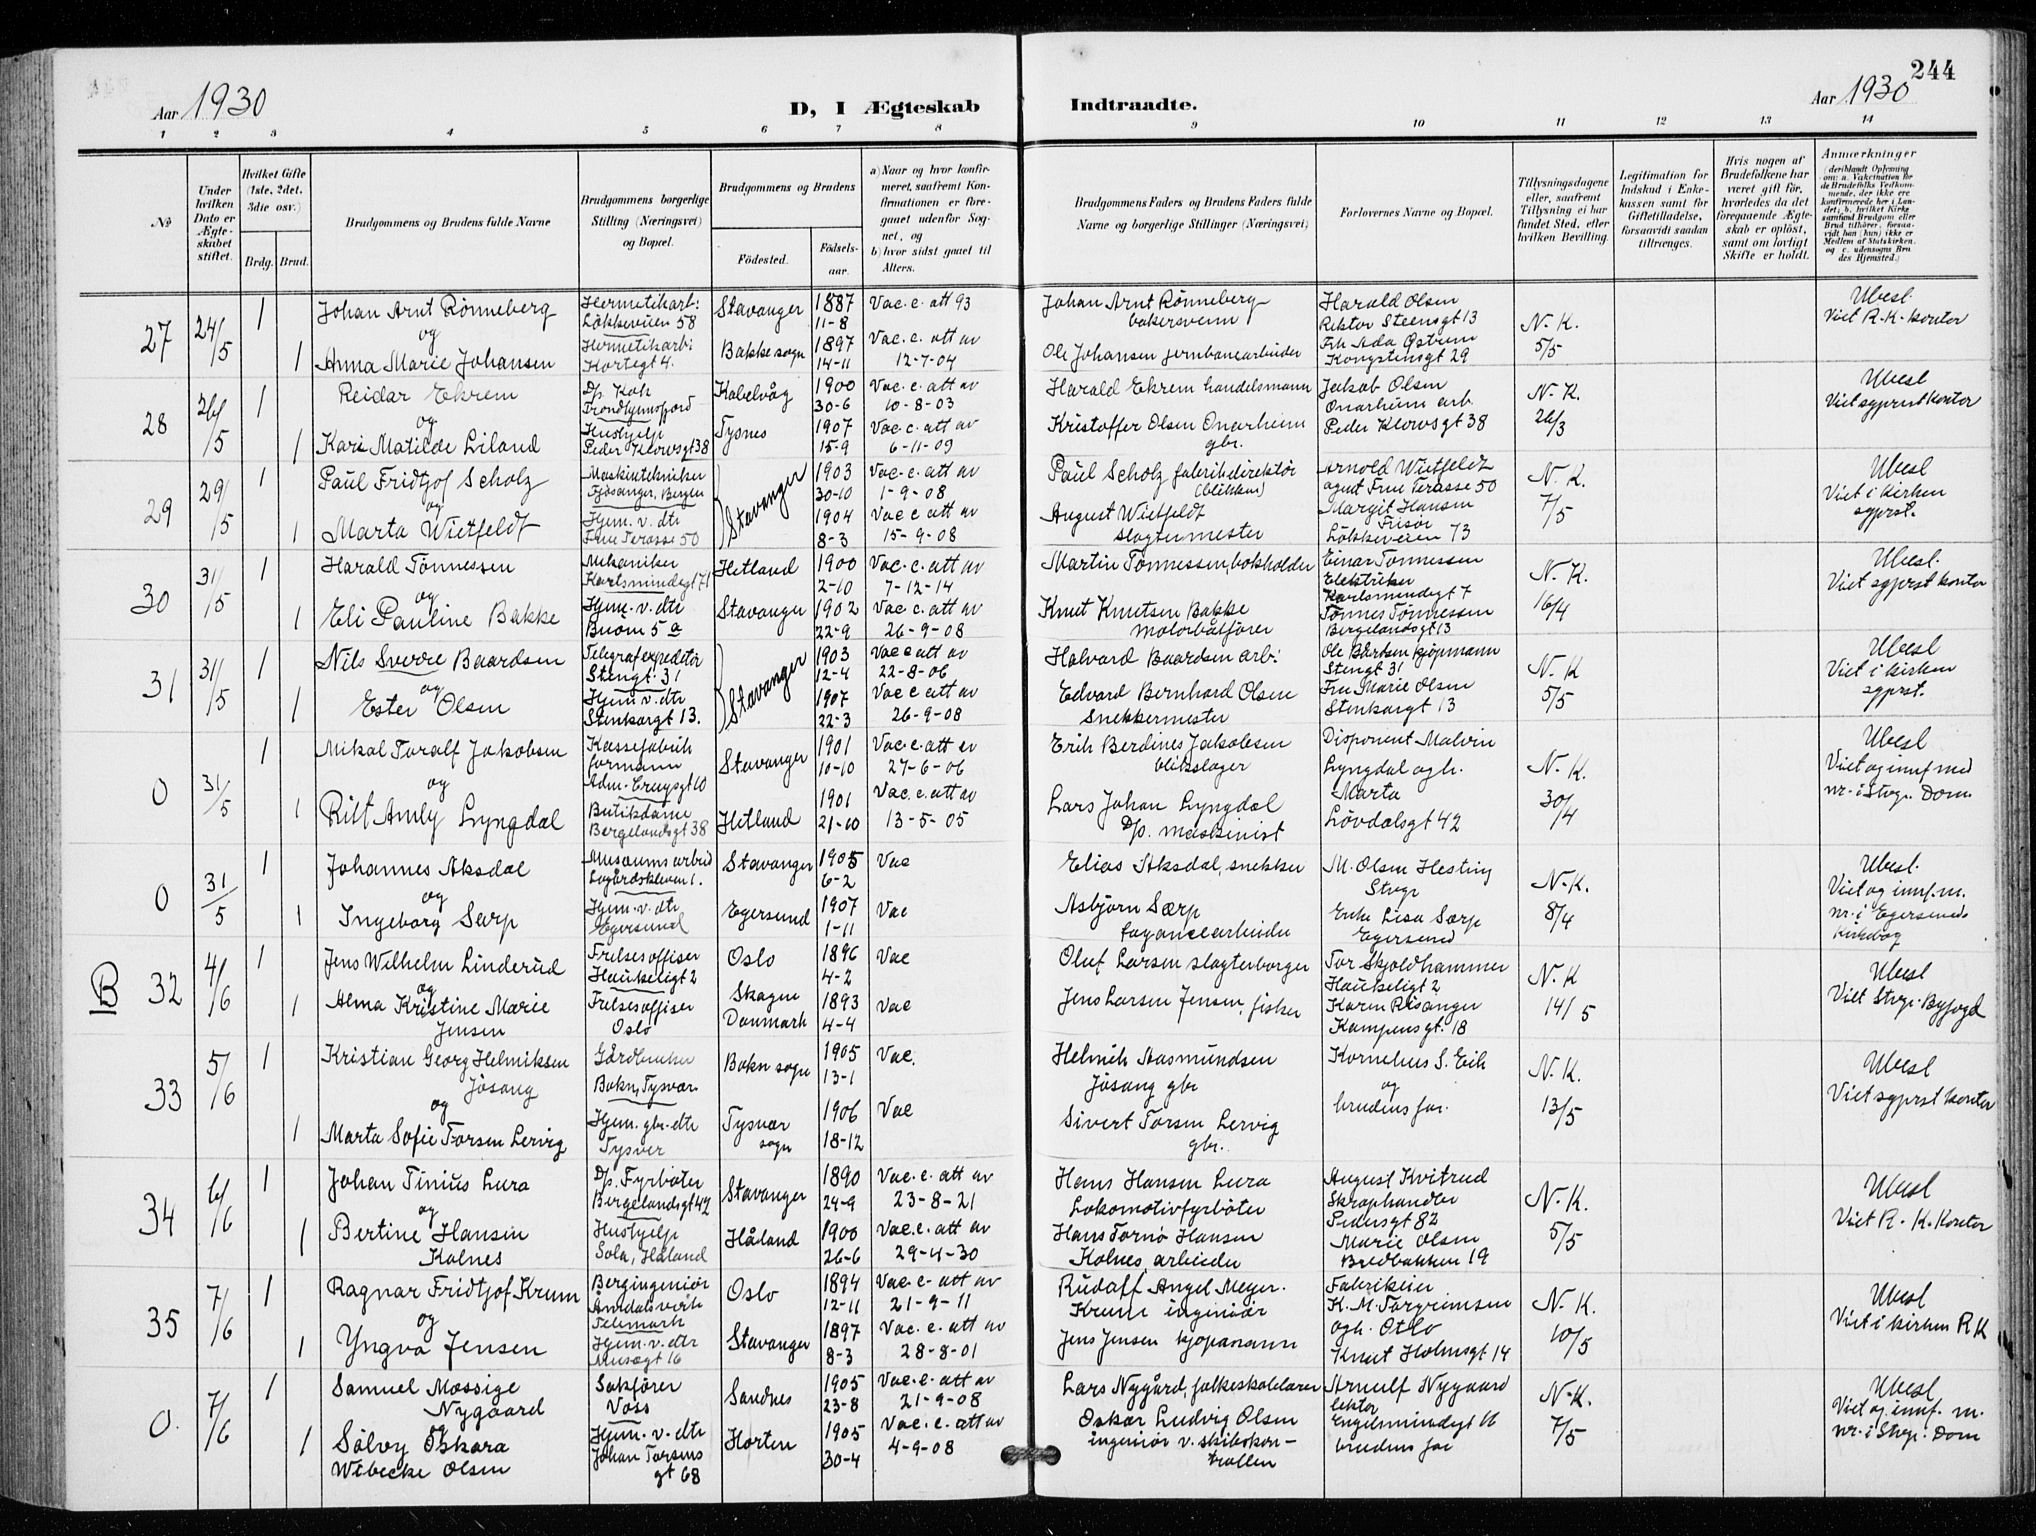 244
Aar 1930
D, I Ægteskab Indtraadte.
Aar 1930
1 2 3 4 5 6 7 8 9 10 11 12 13 14
No
Under hvilken Dato er Ægteskabet stiftet.
Hvilket Gifte (1ste, 2det, 3die osv.)
Brdg. Brud.
Brudgommens og Brudens fulde Navne
Brudgommens borgerlige Stilling (Næringsvei) og Bopæl.
Brudgommens og Brudens
Födested.
Födsels-aar.
a) Naar og hvor konfirmeret, saafremt Konfirmationen er foregaaet udenför Sognet, og
b) hvor sidst gaaet til Alters.
Brudgommens Faders og Brudens Faders fulde Navne og borgerlige Stillinger (Næringsvei)
Forlovernes Navne og Bopæl.
Tillysningsdagene eller, saafremt Tillysning ei har fundet Sted, efter hvilken Bevilling.
Legitimation for Indskud i Enkekassen samt for Giftetilladelse, forsaavidt saadan tiltrænges.
Hvis nogen af Brudefolkene har været gift för, hvorledes da det foregaaende Ægteskab er oplöst, samt om lovligt Skifte er holdt.
Anmærkninger
27 24/5 1 Johan Arnt Rønneberg
Hermetikarb: Løkkeveien 58
Stavanger 1887 11-8
Vac. c. att 93
Johan Arnt Rønneberg bakersvenn
Harald Olsen Rektor Steensgt 13
N. K. 5/5
Ubesl. Viet R.K. kontor
og
1 Anna Marie Johansen
Hermetikarb: Kortegt 4.
Bakke sogn 1897 14-11
Vac. c. att av 12-7-04
Ole Johansen jernbanearbeider
Frk Ada Østrem Kongstensgt 29
28 26/5 1 Reidar Ekrem
D/s. Kok Trondhjemsfjord
Kabelvåg 1900 30-6
Vac. c. att av 10-8-03
Harald Ekrem handelsmann
Jakob Olsen Onarheim arb.
N. K. 26/3
Ubesl Viet sgprst kontor
og
1 Kari Matilde Liland
Hushjelp Peder Klowsgt 38
Tysnes 1907 15-9
Vac. c. att av 6-11-09
Kristoffer Olsen Onarheim gbr.
Peder Klowsgt 38
29 29/5 1 Paul Fridtjof Scholz
Maskintekniker Fjøsanger, Bergen
Stavanger 1903 30-10
Vac. c. att av 1-9-08
Paul Scholz fabrikdirektør (blikken)
Arnold Wietfeldt agent Frue Terasse 50
N. K. 7/5
Ubesl Viet i kirken sgprst.
og
1 Marta Wietfeldt
Hjem. v. dtr Frue Terasse 50
1904 8-3
Vac c att av 15-9-08
August Wietfeldt slagtermester
Margit Hansen Frisør Løkkeveien 73
30 31/5 1 Harald Tönnessen
Mekaniker Karlsmindegt 71
Hetland 1900 2-10
Vac. c. att av 7-12-14
Martin Tönnessen, bokholder
Einar Tönnessen Elektriker Karlsmindegt 7
N. K. 16/4
Ubesl. Viet sgprst kontor
og
1 Eli Pauline Bakke
Hjem. v. dtr Breön 5 a
Stavanger 1902 22-9
Vac c. att av 26-9-08
Knut Knutsen Bakke motorbåtfører
Tønnes Tønnessen Bergelandsgt 13
31 31/5 1 Nils Sverre Baardsen
Telegrafexpeditör Stengt. 31
Stavanger 1903 12-4
Vac c att av 22-8-06
Halvard Baardsen arb:
Ole Bårdsen kjøpmann Stengt 31
N. K 5/5
Ubesl Viet i kirken sgprst.
og
1 Ester Olsen
Hjem v. dtr Stenkargt 13.
1907 22-3
Vac c att av 26-9-08
Edvard Bernhard Olsen Snekkermester
Fru Marie Olsen Stenkargt 13
0 31/5 1 Mikal Toralf Jakobsen
Kassefabrik formann Adm. Cruysgt 10
Stavanger 1901 10-10
Vac. c. att av 27-6-06
Erik Berdines Jakobsen blikslager
Disponent Malvin Lyngdal ogh. Marta Lövdalsgt 42
N. K. 30/4
Ubesl Viet og innf med nr. i Stvgr. Dom.
og
1 Ritt Amly Lyngdal
Butikdame Bergelandsgt 38
Hetland 1901 21-10
Vac. c. att av 13-5-05
Lars Johan Lyngdal D/s. maskinist
0 31/5 1 Johannes Aksdal
Museumsarbeid Legårdskleven 1.
Stavanger 1905 6-2
Vac
Elias Aksdal, snekker
M. Olsen Hesting Stvgr
N. K. 8/4
Ubesl. Viet og innf. m. nr. i Egersunds Kirkebog
og
1 Ingeborg Særp
Hjem. v. dtr Egersund
Egersund 1907 1-11
Vac
Asbjørn Særp fayancearbeider
Enke Lisa Særp Egersund
B 32 4/6 1 Jens Wilhelm Linderud
Frelsesoffiser Haukeligt 2
Oslo 1896 4-2
Vac
Oluf Larsen slagterborger
Tor Skjoldhammer Haukeligt 2
N. K 14/5
Ubesl Viet Stvgr. Byfogd
og
1 Alma Kristine Marie Jensen
Frelsesoffiser Oslo
Skagen Danmark 1893 4-4
Vac
Jens Larsen Jensen, fisker
Karen Risanger Kampensgt. 18
33 5/6 1 Kristian Georg Helmiksen Jösang
Gårdbruker Bokn, Tysvær
Bokn sogn 1905 13-1
Vac.
Helmik Aasmundsen Jösang gbr
Kornelius S. Eik og brudens far.
N. K. 13/5
Ubesl Viet sgprst kontor
og
1 Marta Sofie Torsen Lervig
Hjem. gbr. dtr Tysver
Tysvær sogn 1906 18-12
Vac
Sivert Torsen Lervig gbr.
34 6/6 1 Johan Tinius Lura
D/s. Fyrböter Bergelandsgt 42
Stavanger 1890 24-9
Vac. c. att av 23-8-21
Hans Hansen Lura Lokomotivfyrböter
August Kvitrud Skraphandler Pedersgt 82
N. K. 5/5
Ubesl Viet R. K. kontor
og
1 Bertine Hansen Kolnes
Hushjelp Sola, Håland
Håland 1900 26-6
Vac. c. att av 29-4-30
Hans Tornø Hansen Kolnes, arbeider
Marie Olsen Bredbakken 19
35 7/6 1 Ragnar Fridtjof Krum
Bergingeniör Åmdalsverk Telemark
Oslo 1894 12-11
Vac. c. att av 21-9-11
Rudolf Angel Meyer. Krum ingeniör
Fabrikeier K. M. Torgrimsen ogh. Oslo
N. K. 10/5
Ubesl Viet i kirken R K
og
1 Yngva Jensen
Hjem. v. dtr Musègt 16
Stavanger 1897 8-3
Vac. c. att av 28-8-01
Jens Jensen kjøpmann
Knut Holmsgt 14
0. 7/6 1 Samuel Mossige Nygaard
Sakfører Voss
Sandnes 1905 23-8
Vac. c. att av 21-9-08
Lars Nygård, folkeskolelærer
Arnulf Nygaard lektor Engelsmindegt 16
N. K. 7/5
Ubesl Viet og innf. m. nr. i Stvgr. Dom
og
1 Sölvy Oskara Wibecke Olsen
Hjem. v. dtr Johan Torsens gt 68
Horten 1905 30-4
Vac. c. att av 4-9-08
Oskar Ludvig Olsen ingeniör v. skibskontrollen
brudens far